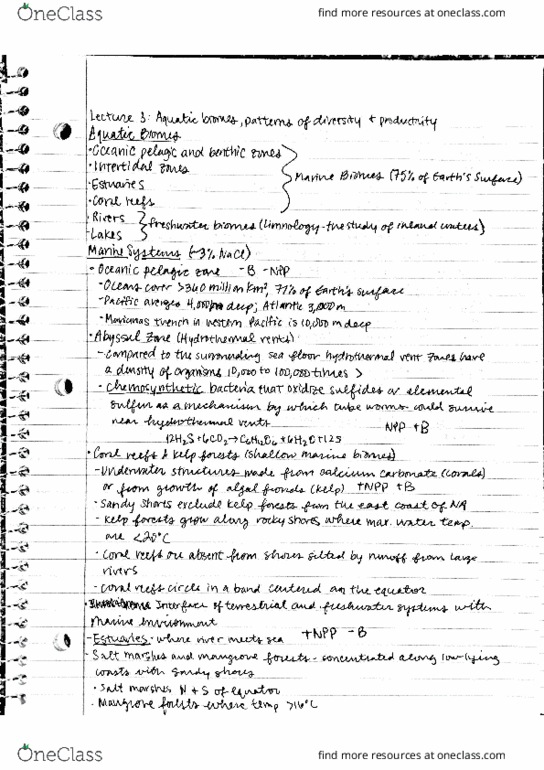 OneClass
find more resources at oneclass.com
Lecture 3: Aquatic biomes, patterns of diversity + productivity
Aquatic Biomes
• Oceanic pelagic and benthic zones
• Intertidal zones
Marine Biomes (75% of Earth's Surface)
• Estuaries
• Coral reefs
• Rivers
freshwater biomes (Limnology - the study of inland waters)
• Lakes
Marine Systems (~3% NaCl)
• Oceanic pelagic zone -B -NPP
- Oceans cover >360 million km², 71% of Earth's surface
- Pacific averages 4,000m deep; Atlantic 3,000m
- Marianas trench in western Pacific is 10,000 m deep
• Abyssal Zone (Hydrothermal vents)
- Compared to the surrounding sea floor hydrothermal vent zones have
a density of organisms 10,000 to 100,000 times >
- chemosynthetic bacteria that oxidize sulfides or elemental
sulfur as a mechanism by which tube worms could survive
near hydrothermal vents
NPP +B
12H₂S + 6CO₂ → C₆H₁₂O₆ + 6H₂O + 12S
• Coral reefs & kelp forests (shallow marine biomes)
- Underwater structures made from calcium carbonate (corals)
or from growth of algal fronds (kelp) +NPP +B
• Sandy shores exclude kelp forests from the east coast of NA
- Kelp forests grow along rocky shores where max. water temp.
are <20°C
• Coral reefs are absent from shores silted by runoff from large
rivers
- coral reefs circle in a band centered on the equator
• Interface of terrestrial and freshwater systems with
marine environment
- Estuaries - where river meets sea +NPP -B
- Salt marshes and mangrove forests - concentrated along low-lying
coasts with sandy shores
• Salt marshes N + S of equator
• Mangrove forests where temp >16°C
OneClass
find more resources at oneclass.com